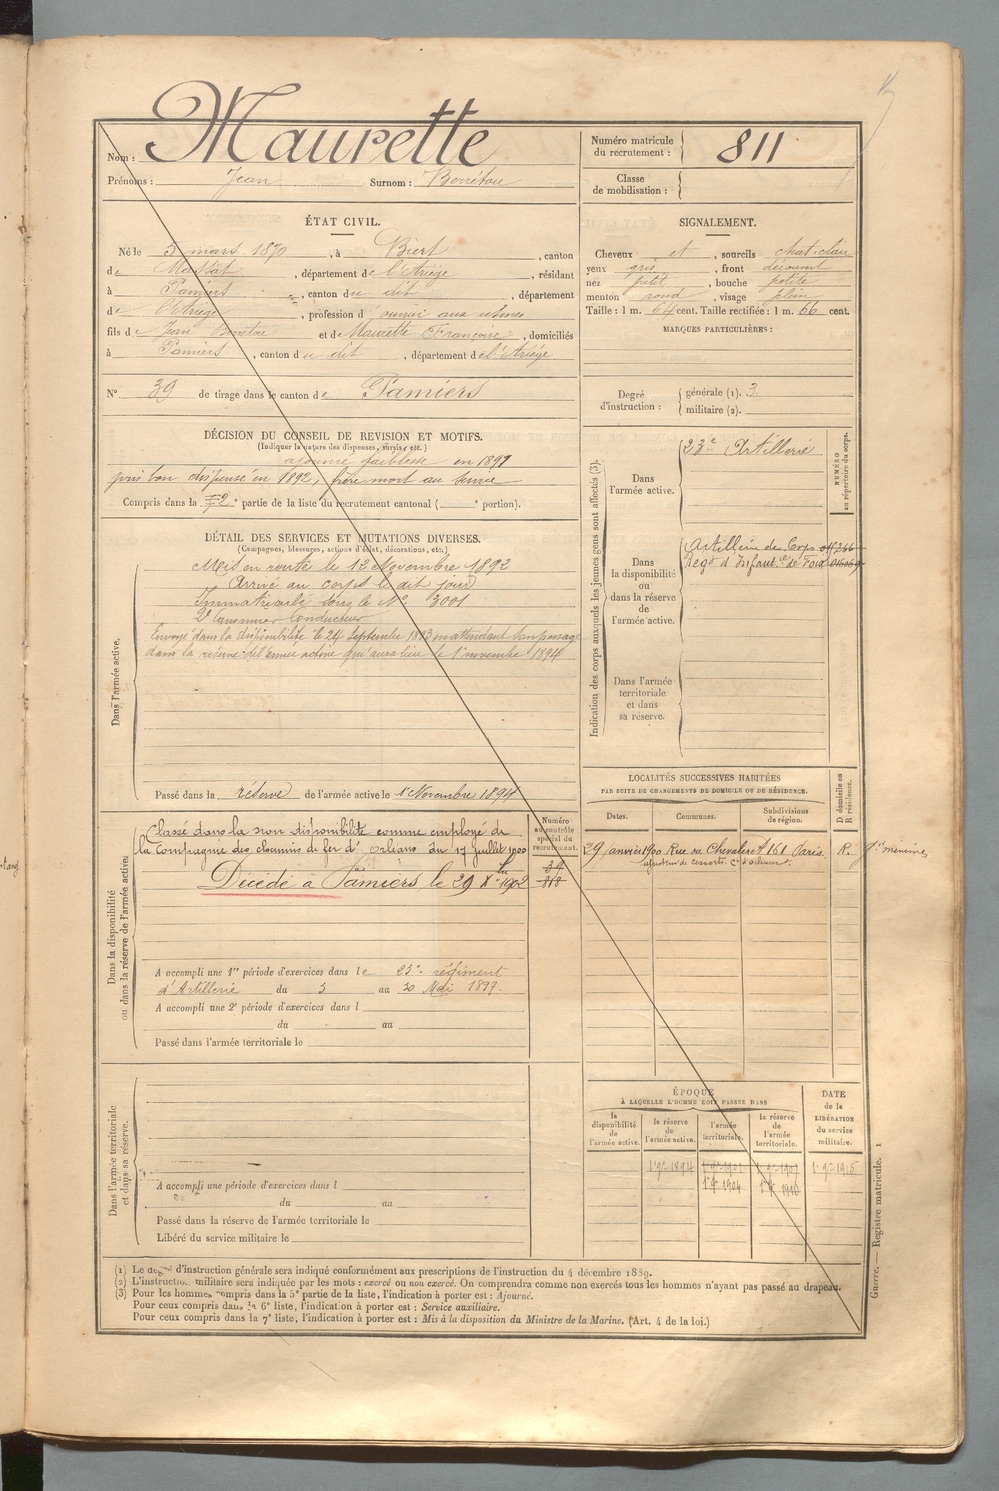 Nom : Maurette
Prénoms : Jean Surnom : Berrétou
Numéro matricule du recrutement : 811
Classe de mobilisation :
ÉTAT CIVIL.
Né le 5 mars 1870, à Biert, canton
de Massat, département de l'Ariège, résidant
à Pamiers, canton du dit, département
de l'Ariège, profession d'ouvrier aux usines
fils de Jean Berrétou et de Maurette Françoise, domiciliés
à Pamiers, canton du dit, département de l'Ariège
N° 39 de tirage dans le canton de Pamiers
SIGNALEMENT.
Cheveux et, sourcils chat-clair
yeux gris, front découvert
nez petit, bouche petite
menton rond, visage plein
Taille : 1 m. 64 cent. Taille rectifiée : 1 m. 66 cent.
MARQUES PARTICULIÈRES :
Degré d'instruction : générale (1). 3
militaire (2).
DÉCISION DU CONSEIL DE REVISION ET MOTIFS.
(Indiquer la nature des dispenses, sursis, etc.)
ajourné faiblesse en 1891
bon dispensé en 1892, frère mort au service
Compris dans la 2e partie de la liste du recrutement cantonal ( e portion).
DÉTAIL DES SERVICES ET MUTATIONS DIVERSES.
(Campagnes, blessures, actions d'éclat, décorations, etc.)
Dans l'armée active.
Mis en route le 12 Novembre 1892
Arrivé au corps le dit jour
Immatriculé sous le N° 3001
2e Canonnier Conducteur
Envoyé dans la disponibilité le 24 Septembre 1893 en attendant son passage
dans la réserve de l'armée active qui aura lieu le 1er novembre 1894
Passé dans la réserve de l'armée active le 1 Novembre 1894
Indication des corps auxquels les jeunes gens sont affectés (3).
NUMÉRO au répertoire du corps.
Dans l'armée active.
23e Artillerie
Dans la disponibilité ou dans la réserve de l'armée active.
Artillerie de Corps
Regt d'Infantie de Foix
Dans l'armée territoriale et dans sa réserve.
LOCALITÉS SUCCESSIVES HABITÉES
PAR SUITE DE CHANGEMENTS DE DOMICILE OU DE RÉSIDENCE.
Dates. Communes. Subdivisions de région. D domicile ou R résidence.
29 anvier 1900 Rue du Chevaleret 161 Paris R.
Dans la disponibilité ou dans la réserve de l'armée active.
Numéro au contrôle spécial du recrutement.
Classé dans la non disponibilité comme employé de
la Compagnie des chemins de fer d'Orléans du 17 Juillet 1900
Décédé à Pamiers le 29 Xbre 1902
A accompli une 1re période d'exercices dans le 23e régiment
d'Artillerie du 3 au 30 Mai 1897.
A accompli une 2e période d'exercices dans l
du au
Passé dans l'armée territoriale le
Dans l'armée territoriale et dans sa réserve.
A accompli une période d'exercices dans l
du au
Passé dans la réserve de l'armée territoriale le
Libéré du service militaire le
ÉPOQUE
À LAQUELLE L'HOMME DOIT PASSER DANS
la disponibilité de l'armée active.
la réserve de l'armée active.
l'armée territoriale.
la réserve de l'armée territoriale.
DATE de la LIBÉRATION du service militaire.
1 9e 1894 1 9e 1901 1 9e 1907 1 9e 1916
1 9e 1904 1 9e 1910
(1) Le degré d'instruction générale sera indiqué conformément aux prescriptions de l'instruction du 4 décembre 1889.
(2) L'instruction militaire sera indiquée par les mots : exercé ou non exercé. On comprendra comme non exercés tous les hommes n'ayant pas passé au drapeau.
(3) Pour les hommes compris dans la 5e partie de la liste, l'indication à porter est : Ajourné.
Pour ceux compris dans la 6e liste, l'indication à porter est : Service auxiliaire.
Pour ceux compris dans la 7e liste, l'indication à porter est : Mis à la disposition du Ministre de la Marine. (Art. 4 de la loi.)
Guerre. — Registre matricule. 1